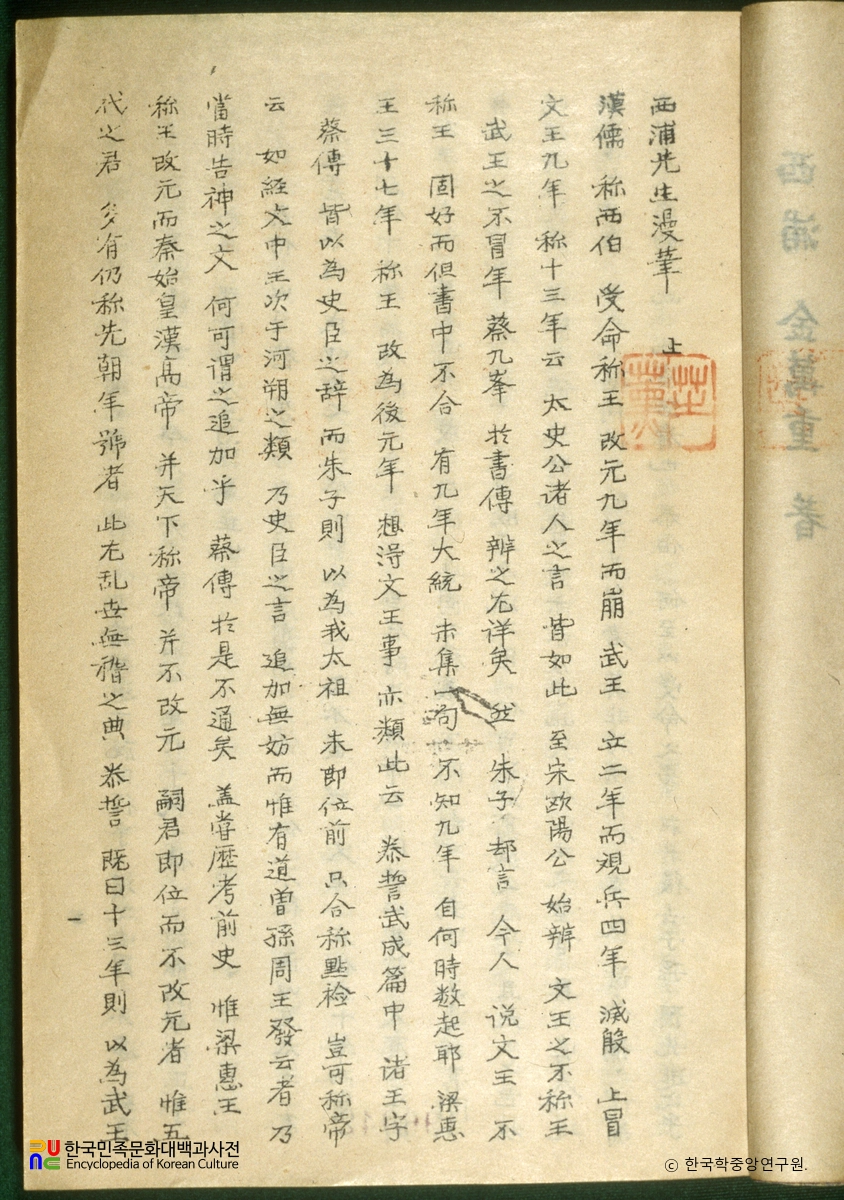 西浦先生漫筆 上
漢儒 称西伯 受命称王 改元九年而崩 武王 立二年而観兵四年 滅殷 上冒
文王九年 称十三年云 太史公诸人之言 皆如此 至宋欧陽公 始辨 文王之不称王
武王之不冒年 蔡九峯 扵書傳 辨之尤详矣 然 朱子 却言 今人 说文王 不
称王 固好而但書中不合 有九年大統 未集一句 不知九年 自何時数起耶 梁惠
王三十七年 称王 改為後元年 想得文王事 亦類此云 泰誓武成篇中 诸王字
蔡傳 皆以為史臣之辞 而朱子則 以為我太祖 未即位前 只合称點检 豈可称帝
云 如経文中王次于河朔之類 乃史臣之言 追加無妨而惟有道曽孫周王發云者 乃
當時告神之文 何可谓之追加乎 蔡傳 扵是不通矣 盖甞歴考前史 惟梁惠王
称王改元而秦始皇漢高帝 并天下称帝 并不改元 嗣君即位而不改元者 惟五
代之君 多有仍称先朝年號者 此尤乱世無稽之典 泰誓 既曰十三年則 以為武王
西浦 金萬重 著
한국민족문화대백과사전
Encyclopedia of Korean Culture
© 한국학중앙연구원.